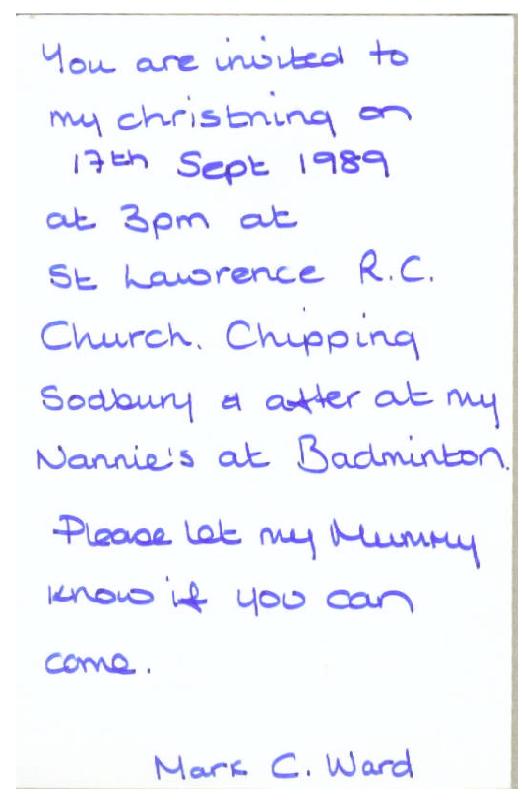 You are invited to
my christning on
17th Sept 1989
at 3pm at
St Lawrence R.C.
Church. Chipping
Sodbury & after at my
Nannie's at Badminton.
Please let my Mummy
know if you can
come.
Mark C. Ward